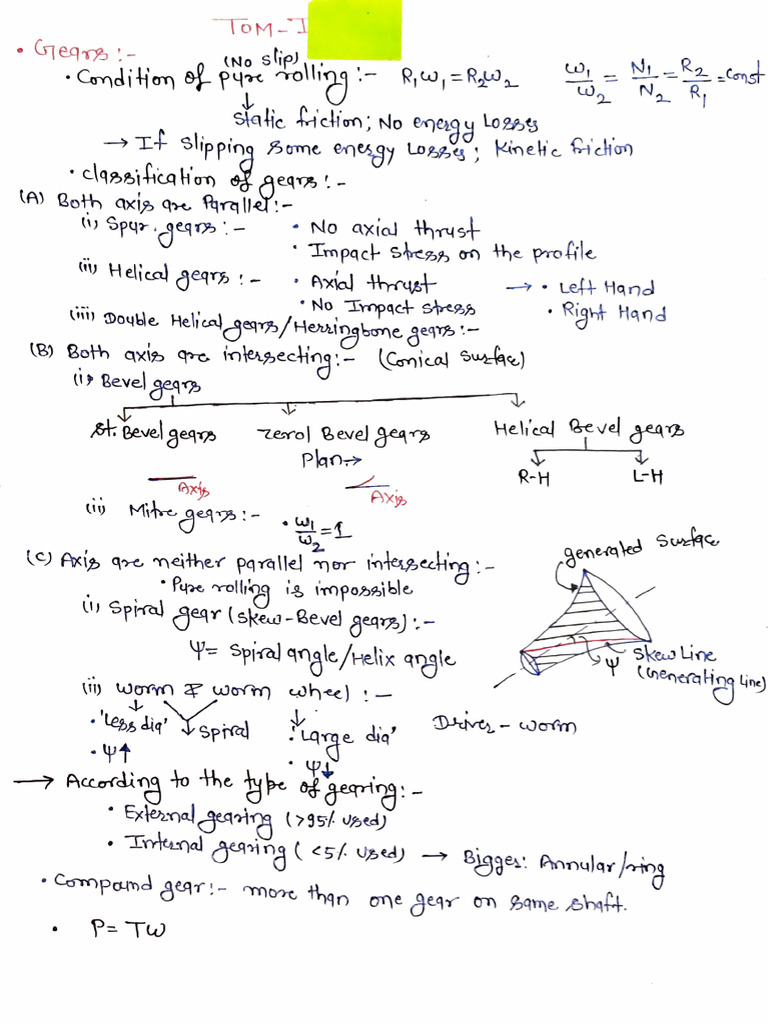 TOM-I
• Gears:-
(No slip)
• Condition of pure rolling:- R₁ω₁=R₂ω₂ ω₁/ω₂ = N₁/N₂ = R₂/R₁ = Const
↓
static friction; No energy Losses
→ If slipping some energy Losses; Kinetic friction
• classification of gears:-
(A) Both axis are Parallel:-
(i) Spur gears:- • No axial thrust
• Impact stress on the profile
(ii) Helical gears:- • Axial thrust → • Left Hand
• No Impact stress • Right Hand
(iii) Double Helical gears/Herringbone gears:-
(B) Both axis are intersecting:- (Conical surface)
(i) Bevel gears
st. Bevel gears zerol Bevel gears Helical Bevel gears
Plan→ R-H L-H
Axis Axis
(ii) Mitre gears:- • ω₁/ω₂ = 1
(C) Axis are neither parallel nor intersecting:-
• Pure rolling is impossible
generated Surface
(i) Spiral gear (skew-Bevel gears):-
ψ = Spiral angle/Helix angle
ψ Skew Line
(Generating Line)
(ii) worm & worm wheel:-
• 'Less dia' ↓ Spiral • 'Large dia' Driver - worm
• ψ↑ • ψ↓
→ According to the type of gearing:-
• External gearing (>95% used)
• Internal gearing (<5% used) → Bigges: Annular/ring
• Compound gear:- more than one gear on same shaft.
• P= Tω